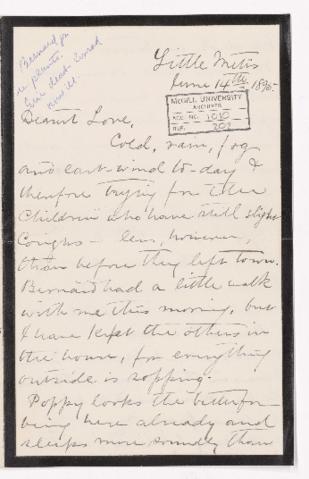 Bernard jr
re plants.
Eric
Little Metis
June 14th 1895.
McGILL UNIVERSITY
ARCHIVES
ACC. NO. 1010
REF.
Dearest Love,
Cold, rain, fog
and east-wind to-day &
therefore trying for the
Children who have still slight
Coughs – less, however,
than before they left town.
Bernard had a little walk
with me this morning, but
I have kept the others in
the house, for everything
outside is sopping.
Poppy looks the better for
being here already and
sleeps more soundly than